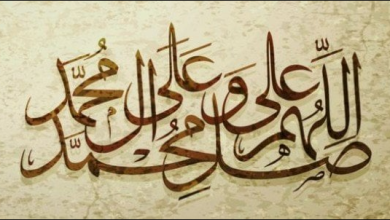 اللَّهُمَّ صَلِّ عَلَى مُحَمَّد وَ عَلَى آلِ مُحَمَّد